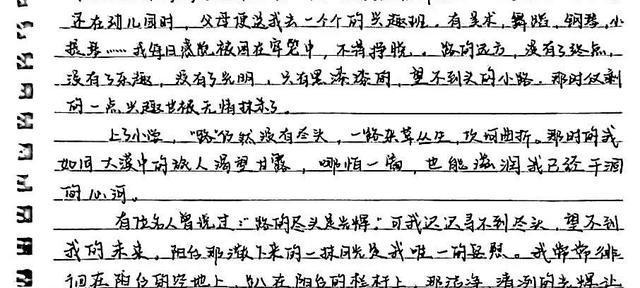 还在幼儿园时，父母便送我去一个个的兴趣班。有美术，舞蹈，钢琴，小
提琴……我每日感觉被困在牢笼中，不得挣脱。路的远方，没有了终点，
没有了乐趣，没有了光明，只有黑漆漆的，望不到头的小路。那时仅剩
的一点兴趣也被无情抹杀了。
上了小学，“路”仍然没有尽头，一路杂草丛生，坎坷曲折。那时的我
如同大漠中的旅人渴望甘露，哪怕一滴，也能滋润我已经干涸
的心河。
有位名人曾说过：“路的尽头是光辉。”可我迟迟寻不到尽头，望不到
我的未来，阳台那撒下来的一抹月光是我唯一的慰藉。我常常徘
徊在阳台的空地上，趴在阳台的栏杆上，那洁净，清冽的光辉让